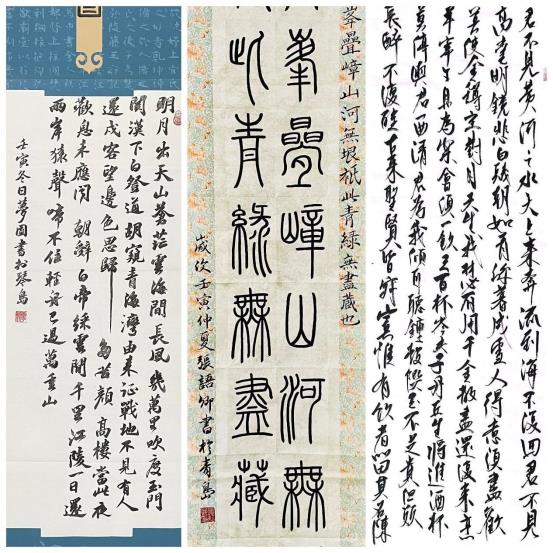 明月出天山蒼茫雲海間長風幾萬里吹度玉門
關漢下白登道胡窺青海灣由来征戰地不見有人
還戍客望邊色思歸多苦顏高樓當此夜
歎息未應閑朝辭白帝綵雲間千里江陵一日還
兩岸猿聲啼不住輕舟已過萬重山
壬寅冬日夢園書於琴島
峯疊嶂山河無垠祇此青綠無盡藏也
峯疊嶂山河無
此青綠無盡藏
歲次壬寅仲夏張語卿書於青島
君不見黄河之水天上来奔流到海不復回君不見
高堂明鏡悲白髮朝如青絲暮成雪人得意須盡歡
莫使金樽空對月天生我材必有用千金散盡還復来烹
羊宰牛且為樂會須一飲三百杯岑夫子丹丘生將進酒杯
莫停與君一曲請君為我傾耳聽鐘鼓饌玉不足貴但願
長醉不復醒古来聖賢皆寂寞惟有飲者留其名陳